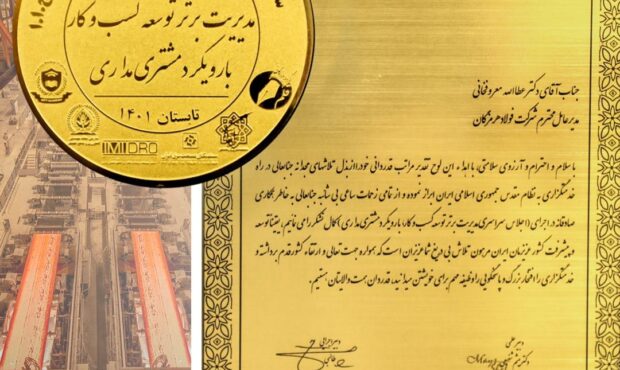 مدیریت برتر توسعه کسب و کار
با رویکرد مشتری مداری
تابستان ۱۴۰۱
IMIDRO
جناب آقای دکتر عطااله معروفخانی
مدیرعامل محترم شرکت فولاد هرمزگان
با سلام و احترام و آرزوی سلامتی، با اهداء این لوح تقدیر مراتب قدردانی خود را از بذل تلاشهای مجدانه جنابعالی در راه
خدمتگزاری به نظام مقدس جمهوری اسلامی ایران ابراز نموده و از تمامی زحمات سامی بی شائبه جنابعالی به خاطر همکاری
صادقانه در اجرای (اجلاس سراسری مدیریت برتر توسعه کسب و کار با رویکرد مشتری مداری) کمال تشکر را می نمائیم. یقینا توسعه
و پیشرفت کشور عزیزمان ایران مرهون تلاش بی دریغ شما عزیزان است که همواره جهت تعالی و ارتقاء کشور قدم برداشته و
خدمتگزاری را افتخار بزرگ و پاسخگویی را وظیفه مهم برای خویشتن میدانید، قدردان همت والایتان هستیم.
دبیر علمی
دبیر اجرایی